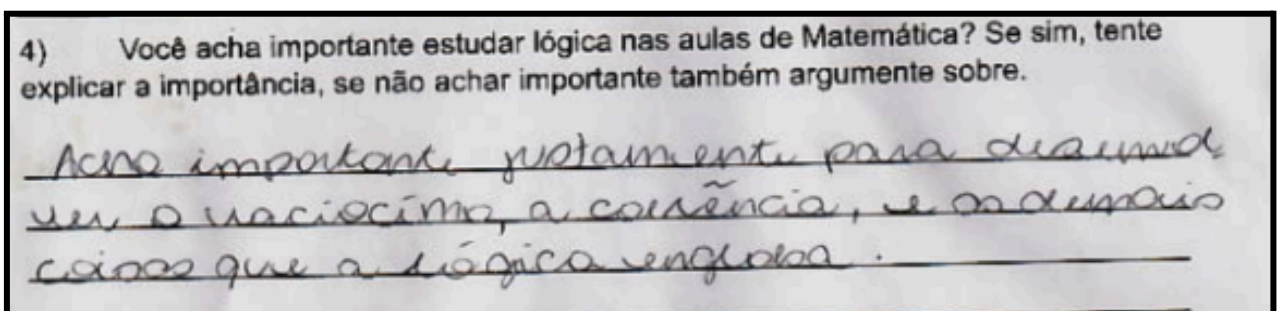 4) Você acha importante estudar lógica nas aulas de Matemática? Se sim, tente
explicar a importância, se não achar importante também argumente sobre.
Acho importante justamente para desenvol
ver o raciocínio, a coerência, e as demais
coisas que a lógica engloba.